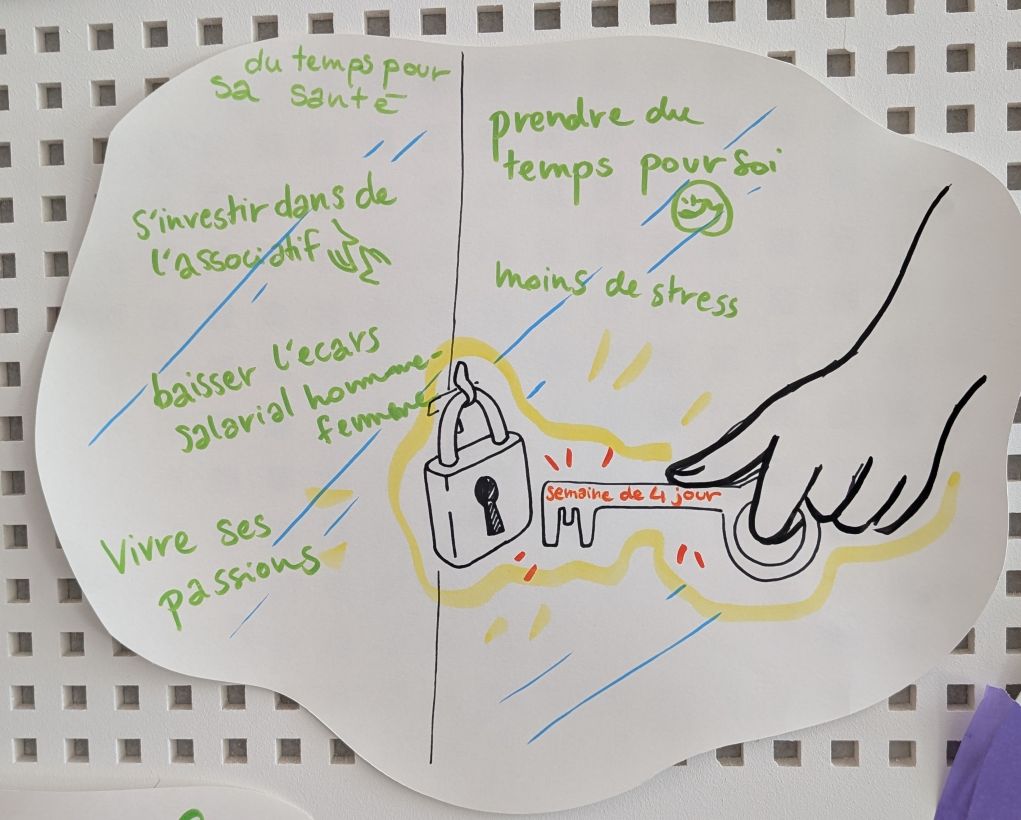 du temps pour
sa santé
s'investir dans de
l'associatif
baisser l'ecars
salarial homme-
femme
Vivre ses
passions
prendre du
temps pour soi
moins de stress
semaine de 4 jour